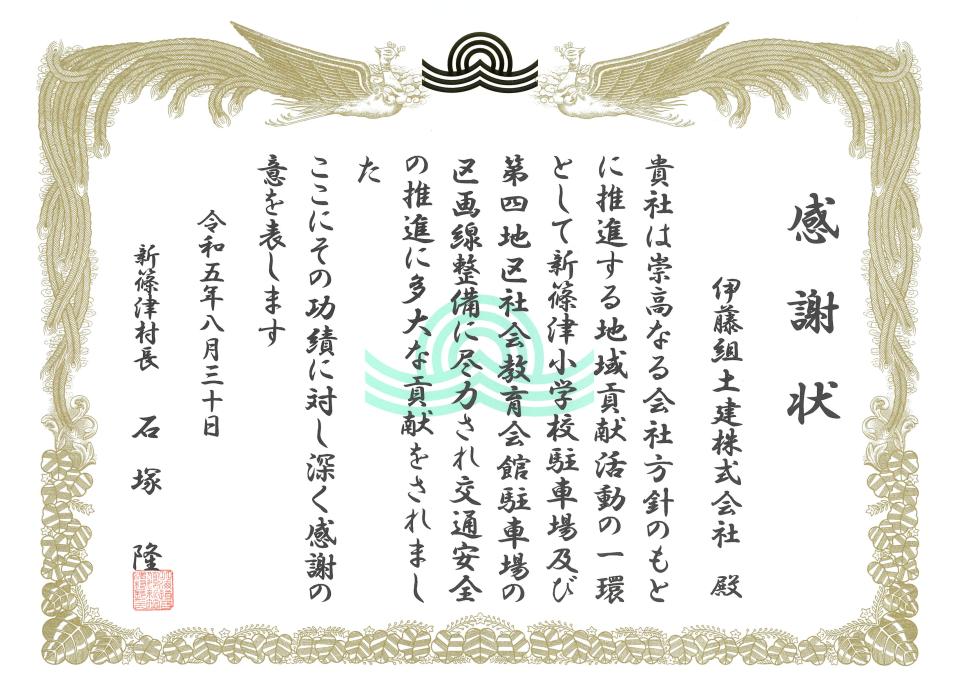 感謝状
伊藤組土建株式会社　殿
貴社は崇高なる会社方針のもと
に推進する地域貢献活動の一環
として新篠津小学校駐車場及び
第四地区社会教育会館駐車場の
区画線整備に尽力され交通安全
の推進に多大な貢献をされまし
た
ここにその功績に対し深く感謝の
意を表します
令和五年八月三十日
新篠津村長　石塚　隆